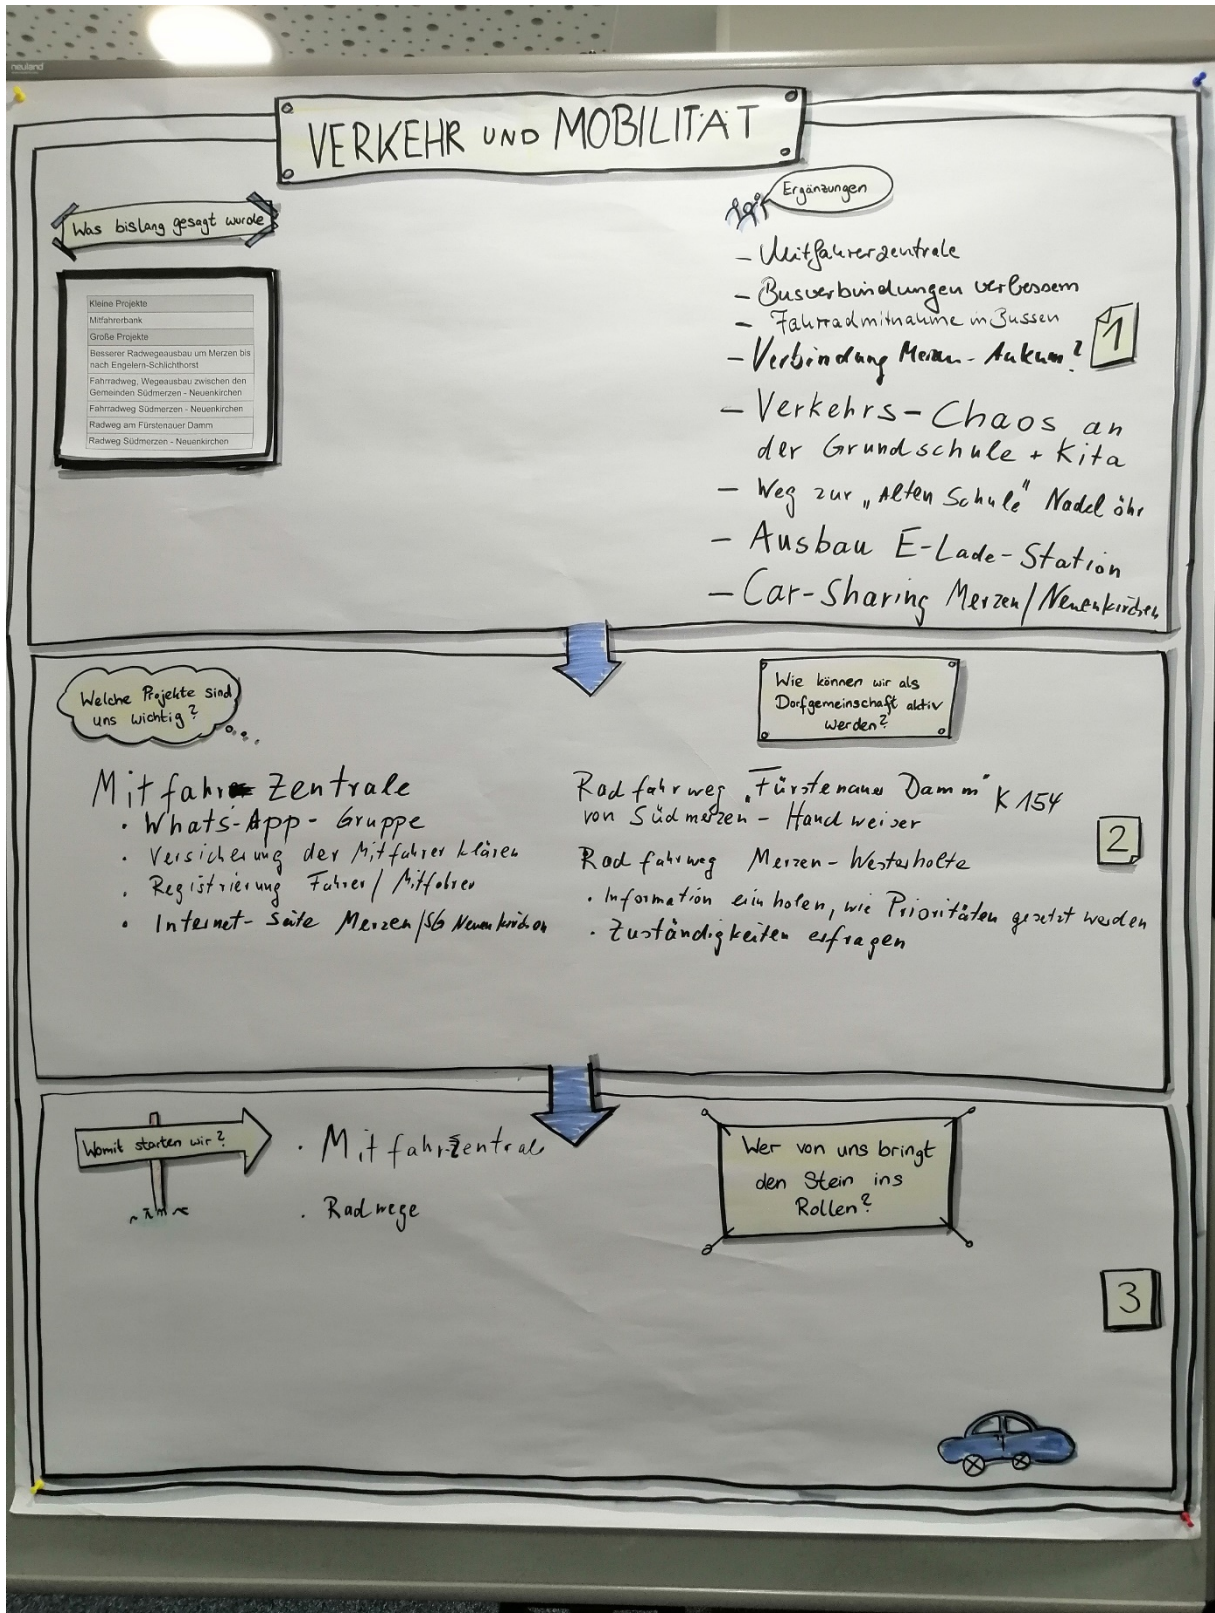 neuland
VERKEHR UND MOBILITÄT
Was bislang gesagt wurde
Kleine Projekte
Mitfahrerbank
Große Projekte
Besserer Radwegeausbau um Merzen bis
nach Engelern-Schlichthorst
Fahrradweg, Wegeausbau zwischen den
Gemeinden Südmerzen - Neuenkirchen
Fahrradweg Südmerzen - Neuenkirchen
Radweg am Fürstenauer Damm
Radweg Südmerzen - Neuenkirchen
Ergänzungen
- Mitfahrerzentrale
- Busverbindungen verbessern
- Fahrradmitnahme in Bussen
- Verbindung Merzen - Ankum?
- Verkehrs-Chaos an
der Grundschule + Kita
- Weg zur „Alten Schule" Nadelöhr
- Ausbau E-Lade-Station
- Car-Sharing Merzen/Neuenkirchen
1
Welche Projekte sind
uns wichtig?
Mitfahr Zentrale
• Whats-App-Gruppe
• Versicherung der Mitfahrer klären
• Registrierung Fahrer/Mitfahrer
• Internet-Seite Merzen/SG Neuenkirchen
Wie können wir als
Dorfgemeinschaft aktiv
werden?
Radfahrweg „Fürstenauer Damm" K 154
von Südmerzen - Handweiser
Radfahrweg Merzen-Westerholte
• Information einholen, wie Prioritäten gesetzt werden
• Zuständigkeiten erfragen
2
Womit starten wir?
• Mitfahrzentrale
• Radwege
Wer von uns bringt
den Stein ins
Rollen?
3